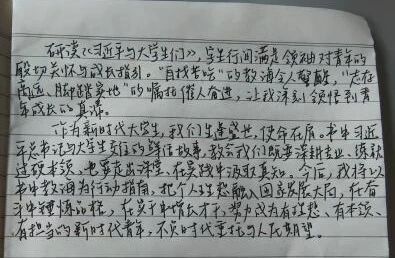 研读《习近平与大学生们》，字里行间满是领袖对青年的
殷切关怀与成长指引。“自找苦吃”的教诲令人警醒，“志存
高远、脚踏实地”的嘱托催人奋进，让我深刻领悟到青
年成长的真谛。
作为新时代大学生，我们生逢盛世，使命在肩。书中习近
平总书记与大学生交往的鲜活故事，教会我们既要深耕专业、练就
过硬本领，也要走出课堂，在实践中汲取真知。今后，我将以
书中教诲为行动指南，把个人理想融入国家发展大局，在奋
斗中锤炼品格，在实干中增长才干，努力成为有理想、有本领、
有担当的新时代青年，不负时代重托与人民期望。